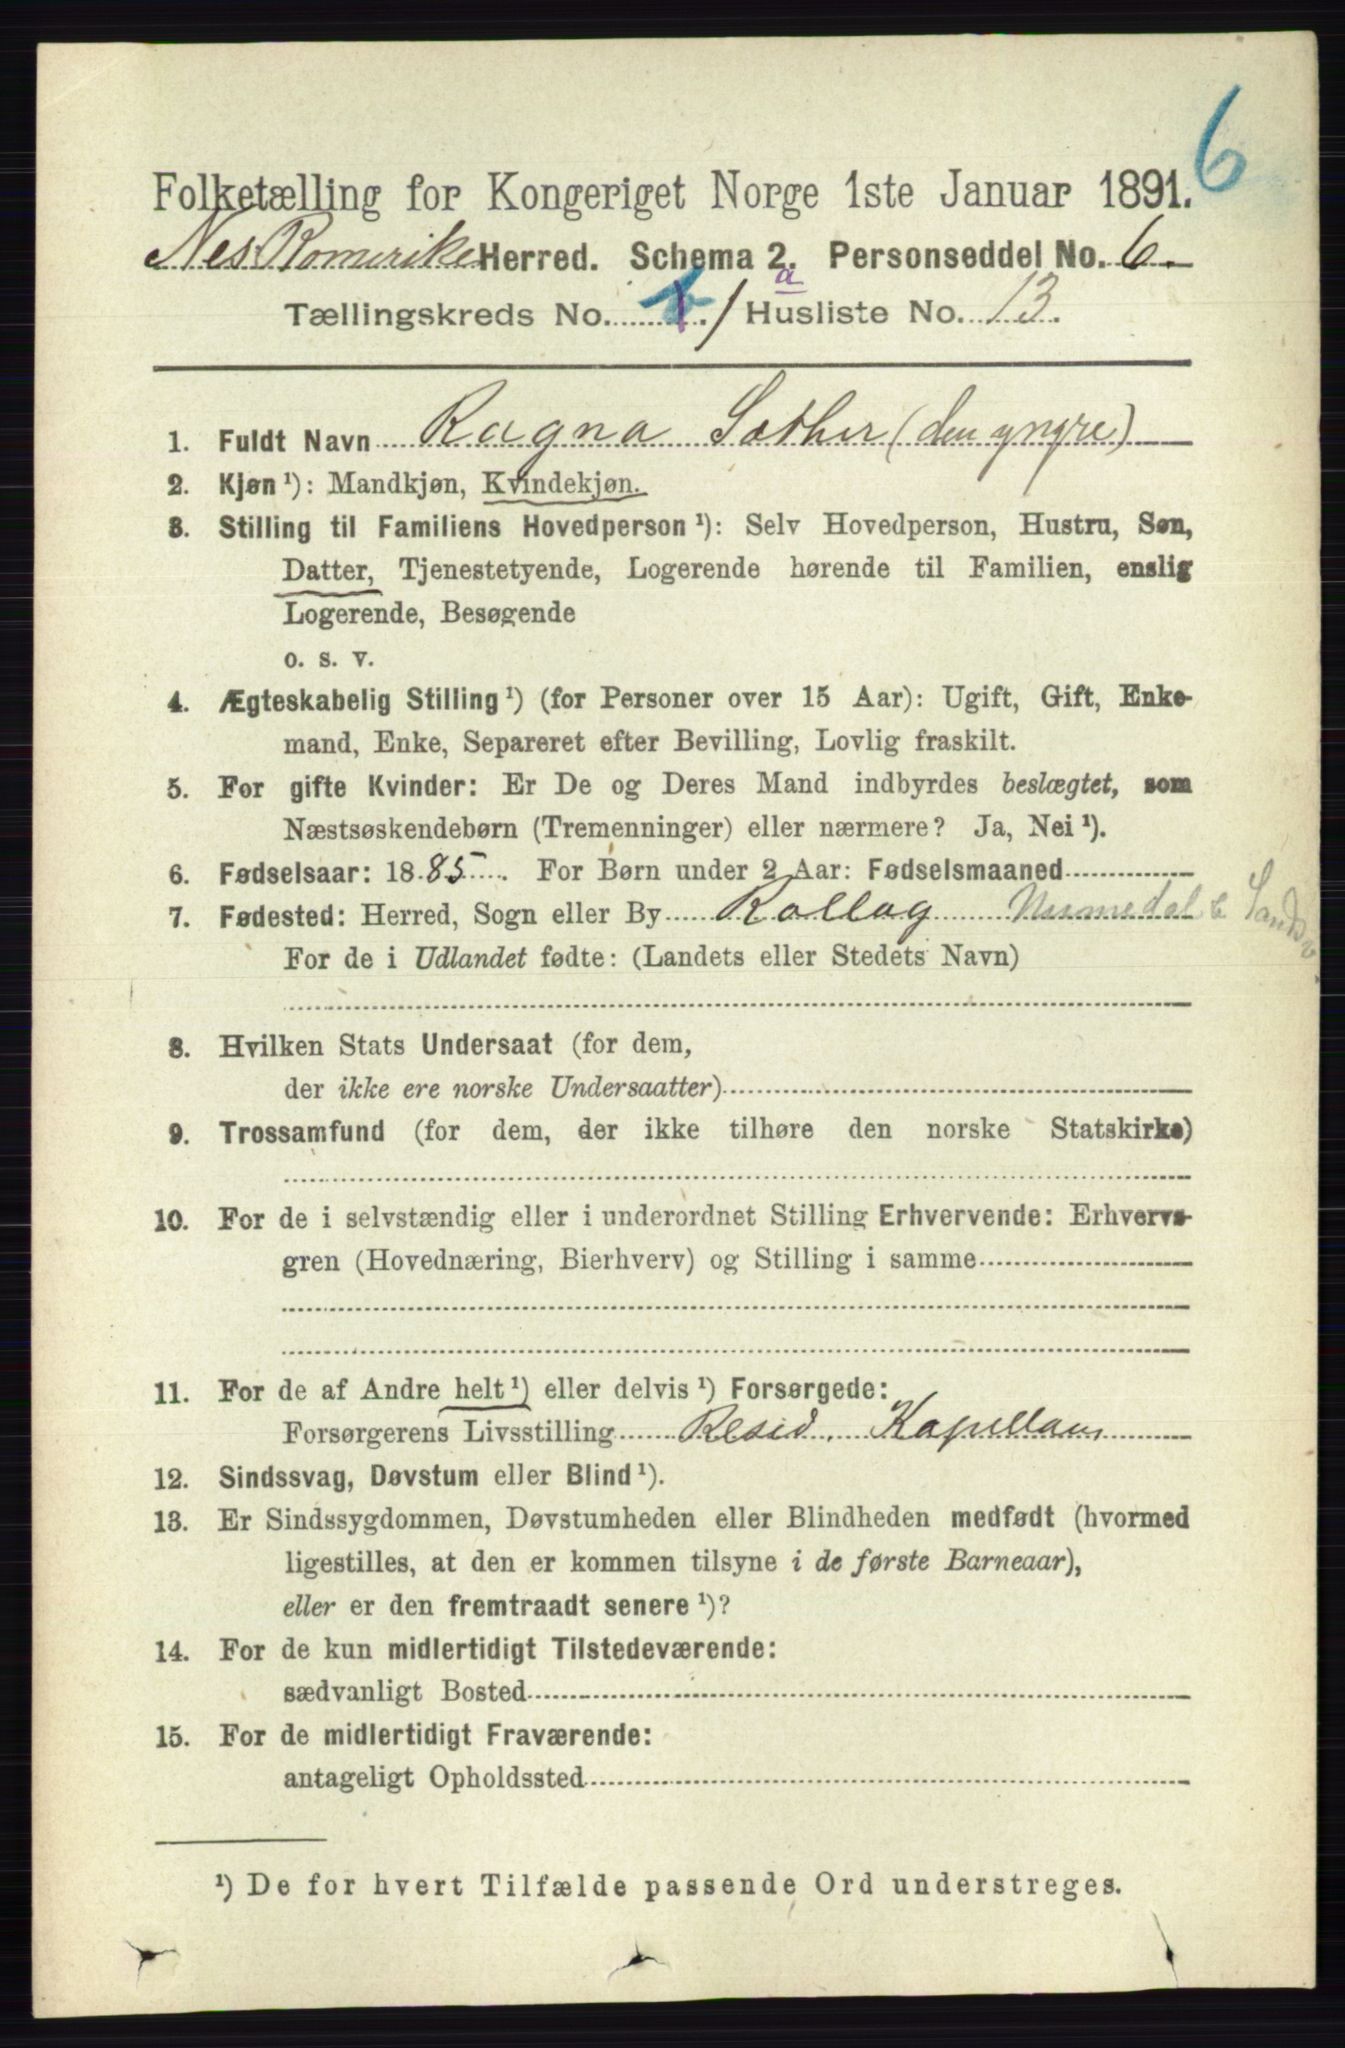 6
Folketælling for Kongeriget Norge 1ste Januar 1891.
Nes Romerike Herred. Schema 2. Personseddel No. 6.
Tællingskreds No. 1 a / Husliste No. 13.
1. Fuldt Navn Ragna Sæther (den yngre)
2. Kjøn ¹): Mandkjøn, Kvindekjøn.
3. Stilling til Familiens Hovedperson ¹): Selv Hovedperson, Hustru, Søn,
Datter, Tjenestetyende, Logerende hørende til Familien, enslig
Logerende, Besøgende
o. s. v.
4. Ægteskabelig Stilling ¹) (for Personer over 15 Aar): Ugift, Gift, Enke-
mand, Enke, Separeret efter Bevilling, Lovlig fraskilt.
5. For gifte Kvinder: Er De og Deres Mand indbyrdes beslægtet, som
Næstsøskendebørn (Tremenninger) eller nærmere? Ja, Nei ¹).
6. Fødselsaar: 1885. For Børn under 2 Aar: Fødselsmaaned
7. Fødested: Herred, Sogn eller By Rollag Numedal
For de i Udlandet fødte: (Landets eller Stedets Navn)
8. Hvilken Stats Undersaat (for dem,
der ikke ere norske Undersaatter)
9. Trossamfund (for dem, der ikke tilhøre den norske Statskirke)
10. For de i selvstændig eller i underordnet Stilling Erhvervende: Erhvervs-
gren (Hovednæring, Bierhverv) og Stilling i samme
11. For de af Andre helt ¹) eller delvis ¹) Forsørgede:
Forsørgerens Livsstilling Resid. Kapellan
12. Sindssvag, Døvstum eller Blind ¹).
13. Er Sindssygdommen, Døvstumheden eller Blindheden medfødt (hvormed
ligestilles, at den er kommen tilsyne i de første Barneaar),
eller er den fremtraadt senere ¹)?
14. For de kun midlertidigt Tilstedeværende:
sædvanligt Bosted
15. For de midlertidigt Fraværende:
antageligt Opholdssted
¹) De for hvert Tilfælde passende Ord understreges.